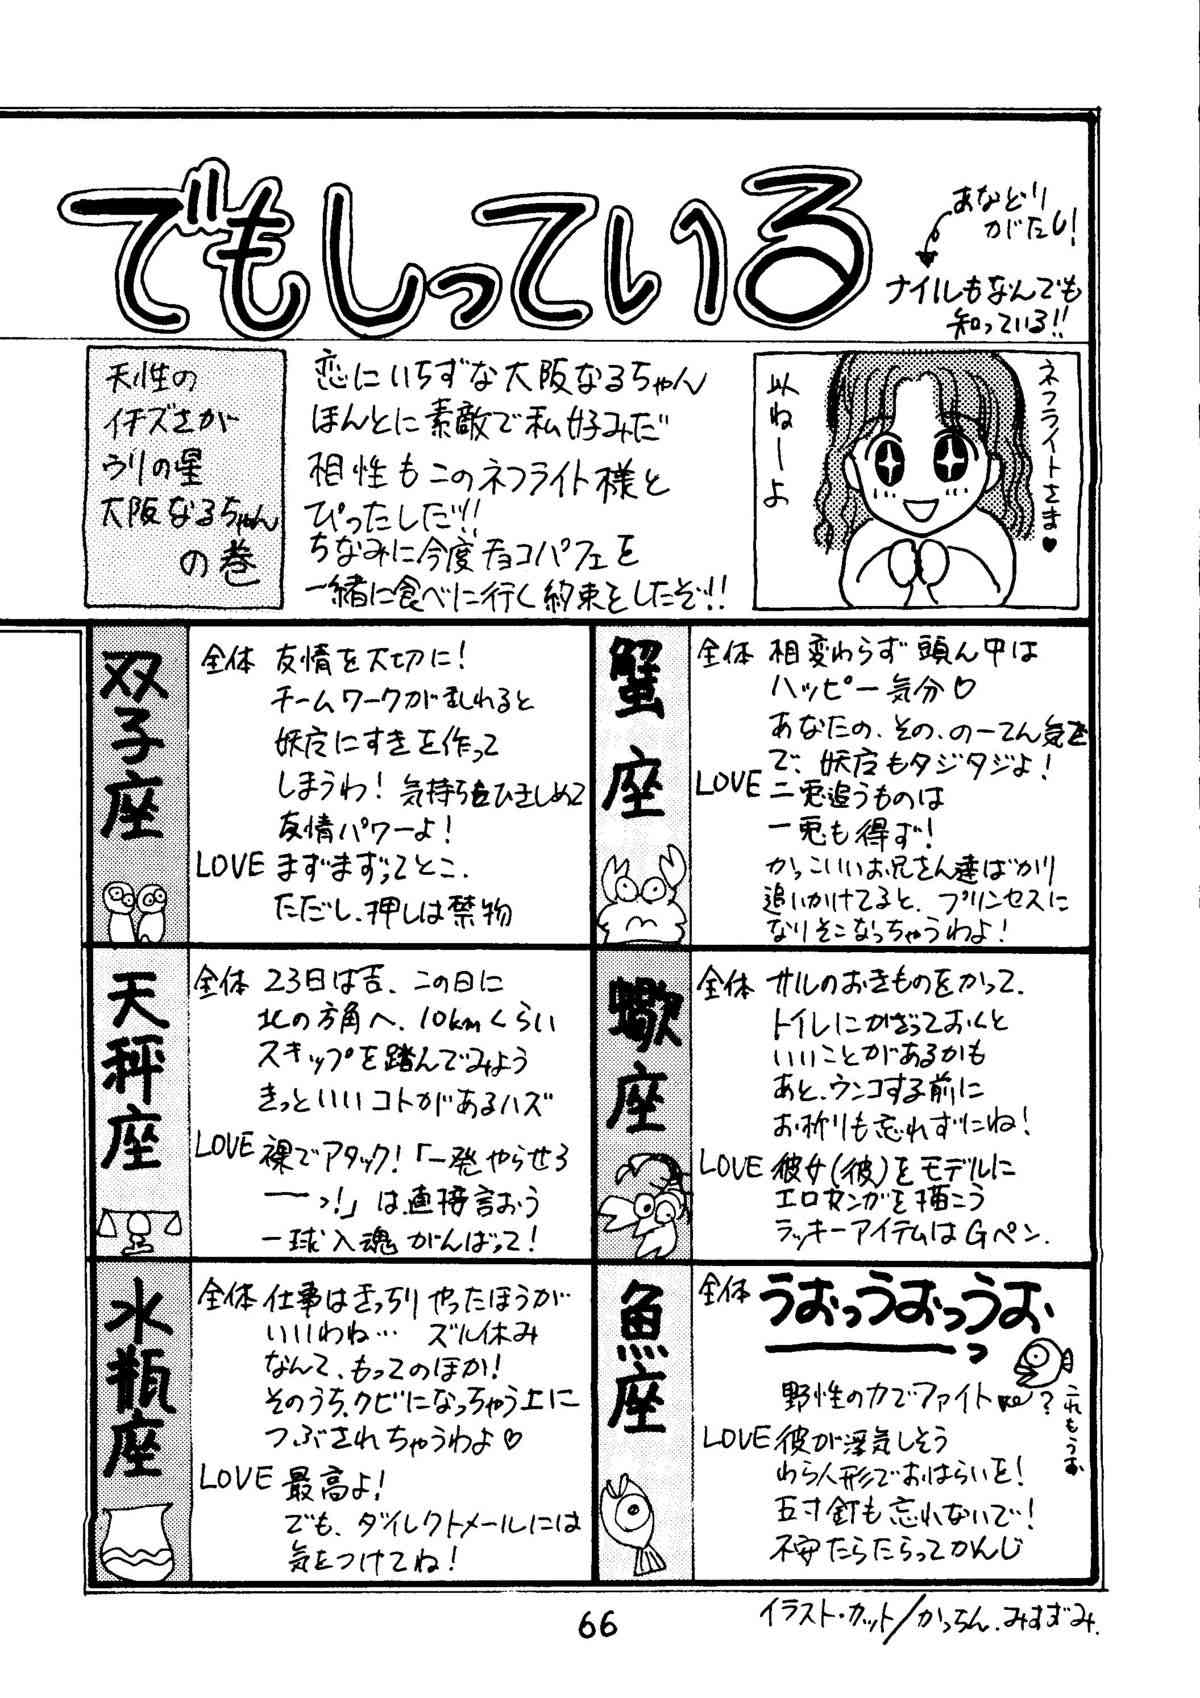 でもしっている
あなどり
がたし!
ナイルもなんでも
知っている!!
天性の
イチズさが
ウリの星
大阪なるちゃん
の巻
恋にいちずな大阪なるちゃん
ほんとに素敵で私好みだ
相性もこのネフライト様と
ぴったしだ!!
ちなみに今度チョコパフェを
一緒に食べに行く約束をしたぞ!!
ネフライトさま♥
双子座
全体 友情を大切に!
チームワークがみだれると
妖魔にすきを作って
しまうわ! 気持ちをひきしめて
友情パワーよ!
LOVE まずまずってとこ.
ただし、押しは禁物
蟹座
全体 相変わらず頭ん中は
ハッピー気分♡
あなたの、その、のーてん気さ
で、妖魔もタジタジよ!
LOVE 二兎追うものは
一兎も得ず!
かっこいいお兄さん達ばかり
追いかけてると、プリンセスに
なりそこなっちゃうわよ!
天秤座
全体 23日は吉、この日に
北の方角へ、10kmくらい
スキップを踏んでみよう
きっといいコトがあるハズ
LOVE 裸でアタック!「一発やらせろ
ーっ!」は直接言おう
一球入魂がんばって!
蠍座
全体 サルのおきものをかって、
トイレにかざっておくと
いいことがあるかも
あと、ウンコする前に
お祈りも忘れずにね!
LOVE 彼女(彼)をモデルに
エロマンガを描こう
ラッキーアイテムはGペン.
水瓶座
全体 仕事はきっちりやったほうが
いいわね… ズル休み
なんて、もってのほか!
そのうち、クビになっちゃう上に
つぶされちゃうわよ♡
LOVE 最高よ!
でも、ダイレクトメールには
気をつけてね!
魚座
全体 うおっうおっうお
ーーーっ
野性の力でファイト
?
これもうお
LOVE 彼が浮気しそう
わら人形でおはらいを!
五寸釘も忘れないで!
不安たらたらってかんじ
66
イラスト・カット/かっちん.みすずみ.